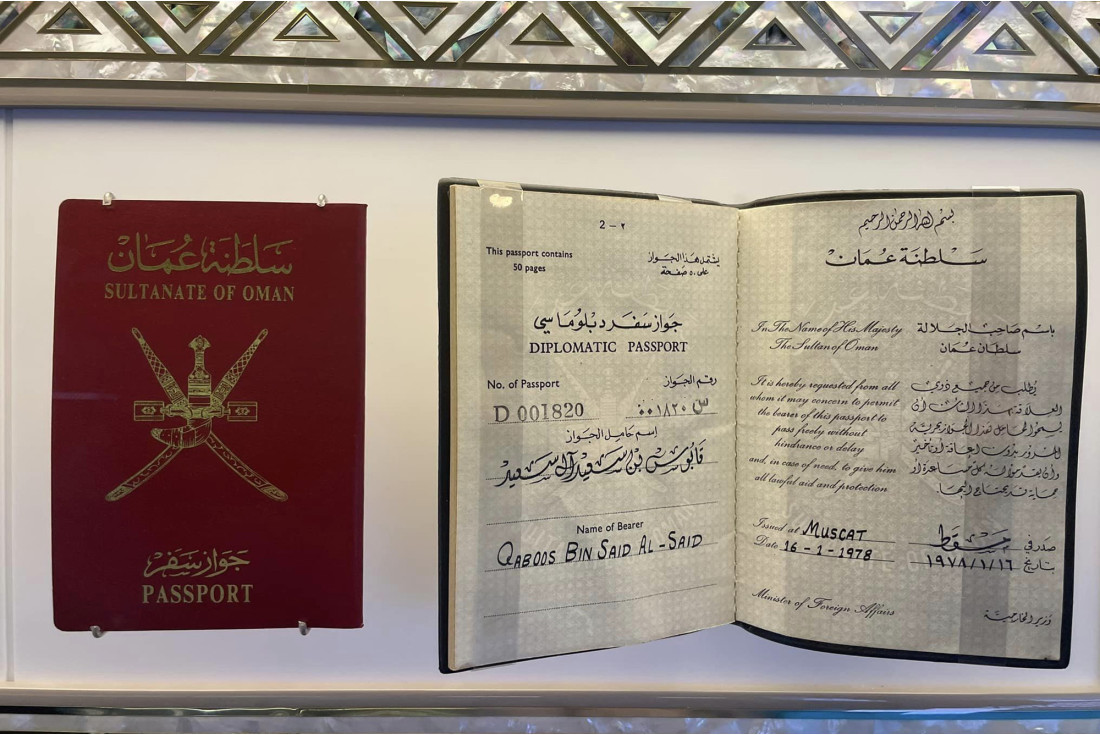 سلطنة عمان
SULTANATE OF OMAN
جواز سفر
PASSPORT
2 – ٢
This passport contains
50 pages
يشتمل هذا الجواز
على ٥٠ صفحة
جواز سفر دبلوماسي
DIPLOMATIC PASSPORT
No. of Passport
رقم الجواز
D 001820
س ٠٠١٨٢٠
إسم حامل الجواز
قابوس بن سعيد آل سعيد
Name of Bearer
QABOOS BIN SAID AL-SAID
بسم الله الرحمن الرحيم
سلطنة عمان
In The Name of His Majesty
The Sultan of Oman
باسم صاحب الجلالة
سلطان عمان
It is hereby requested from all
whom it may concern to permit
the bearer of this passport to
pass freely without
hindrance or delay
and, in case of need, to give him
all lawful aid and protection
يُطلب من جميع ذوي
العلاقة بهذا الشأن أن
يسمحوا لحامل هذا الجواز بحرية
المرور بدون إعاقة أو تأخير
وأن يقدموا له كل مساعدة أو
حماية قد يحتاج إليها.
Issued at MUSCAT
Date 16-1-1978
صدر في مسقط
بتاريخ ١٩٧٨/١/١٦
Minister of Foreign Affairs
وزير الخارجية